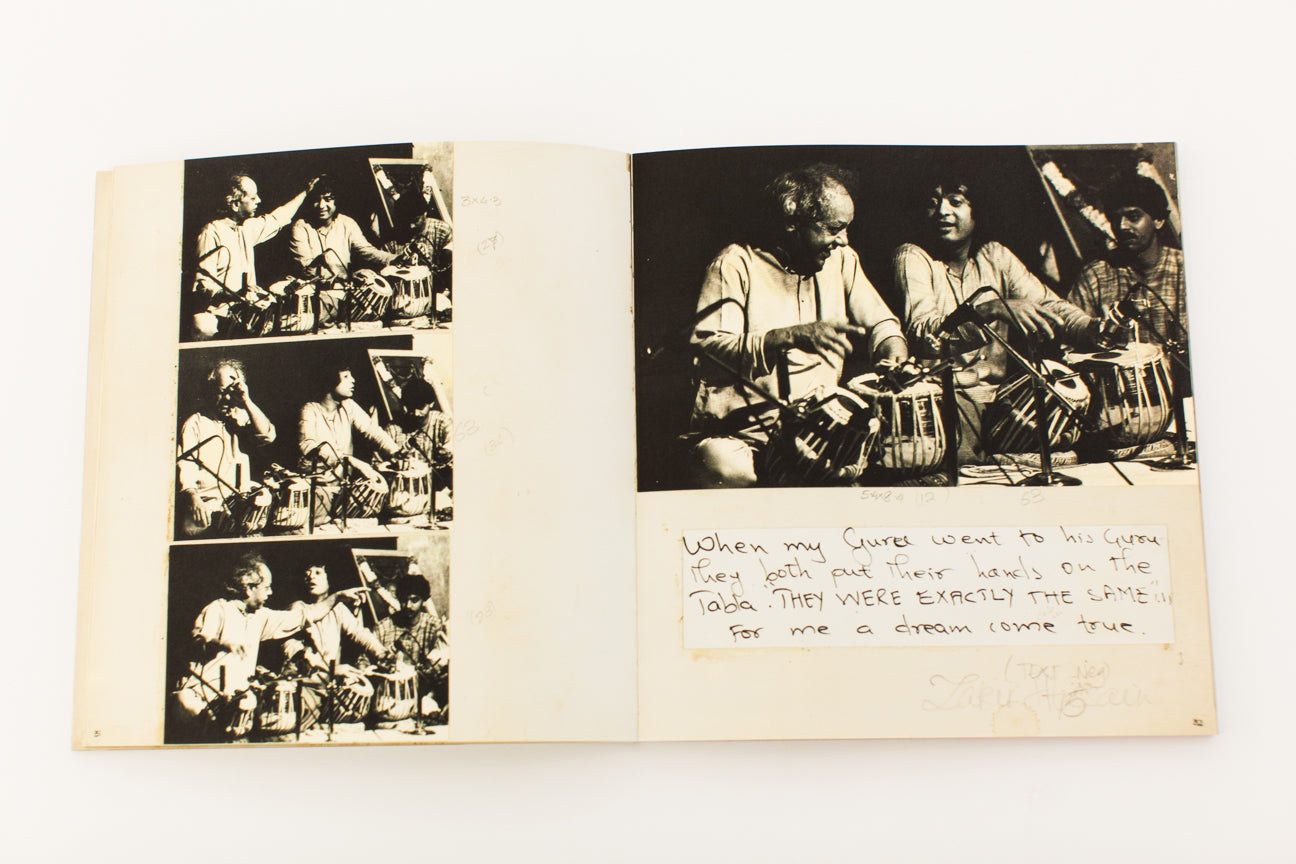 3x4.3
(27)
68
(28)
5x8.4 (12)
53
When my Guru went to his Guru
they both put their hands on the
Tabla "THEY WERE EXACTLY THE SAME"
For me a dream come true.
(TEXT Neg)
Zakir Hussain